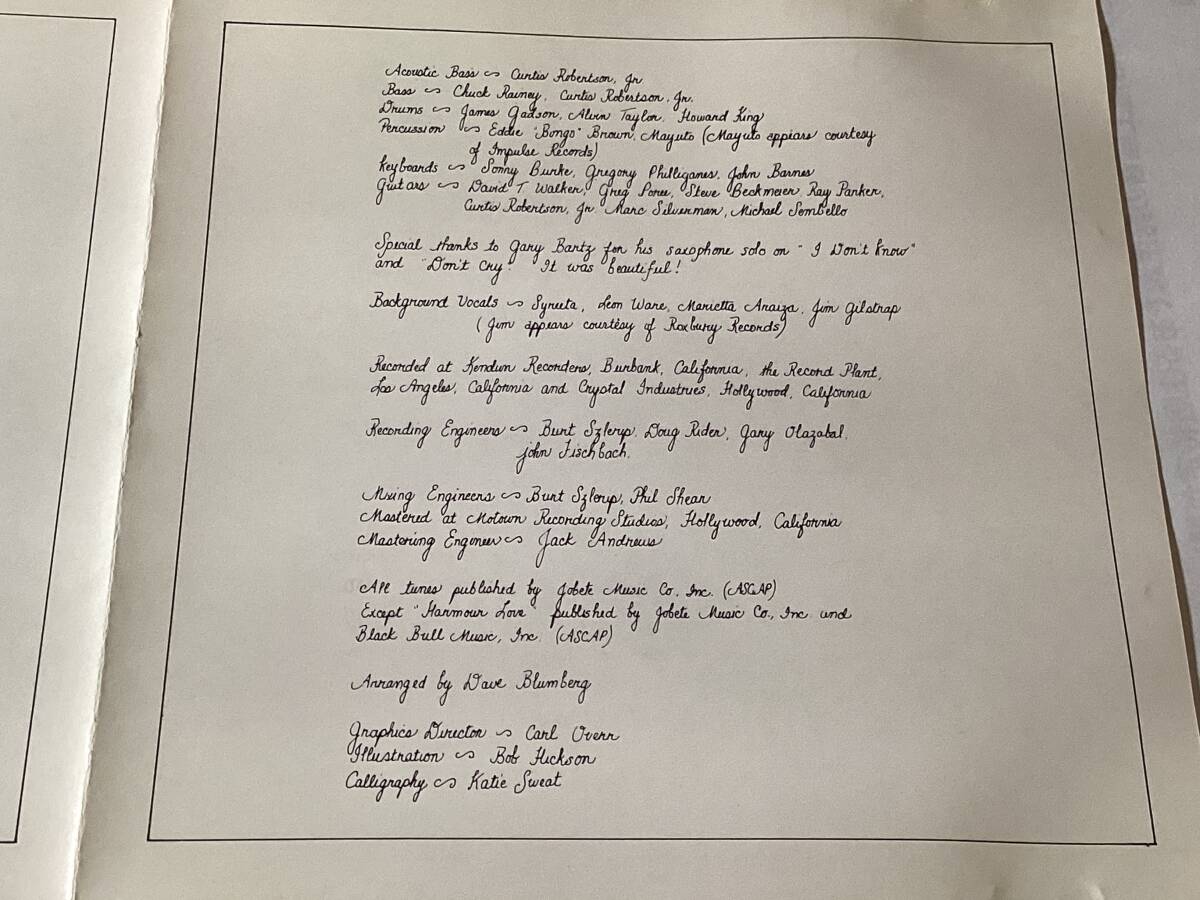 Acoustic Bass ~ Curtis Robertson, Jr.
Bass ~ Chuck Rainey, Curtis Robertson, Jr.
Drums ~ James Gadson, Alvin Taylor, Howard King
Percussion ~ Eddie "Bongo" Brown, Mayuto (Mayuto appears courtesy
of Impulse Records)
Keyboards ~ Sonny Burke, Gregory Philliganes, John Barnes
Guitars ~ David T. Walker, Greg Poree, Steve Beckmeier, Ray Parker,
Curtis Robertson, Jr. Marc Silverman, Michael Sembello
Special thanks to Gary Bartz for his saxophone solo on "I Don't Know"
and "Don't Cry." It was beautiful!
Background Vocals ~ Syreeta, Leon Ware, Marietta Araiza, Jim Gilstrap
(Jim appears courtesy of Roxbury Records)
Recorded at Kendun Recorders, Burbank, California, the Record Plant,
Los Angeles, California and Crystal Industries, Hollywood, California
Recording Engineers ~ Burt Szlerup, Doug Rider, Gary Olazabal,
John Fischbach.
Mixing Engineers ~ Burt Szlerup, Phil Shear
Mastered at Motown Recording Studios, Hollywood, California
Mastering Engineer ~ Jack Andrews
All tunes published by Jobete Music Co. Inc. (ASCAP)
Except "Harmour Love" published by Jobete Music Co., Inc. and
Black Bull Music, Inc. (ASCAP)
Arranged by Dave Blumberg
Graphics Director ~ Carl Overr
Illustration ~ Bob Hickson
Calligraphy ~ Katie Sweat